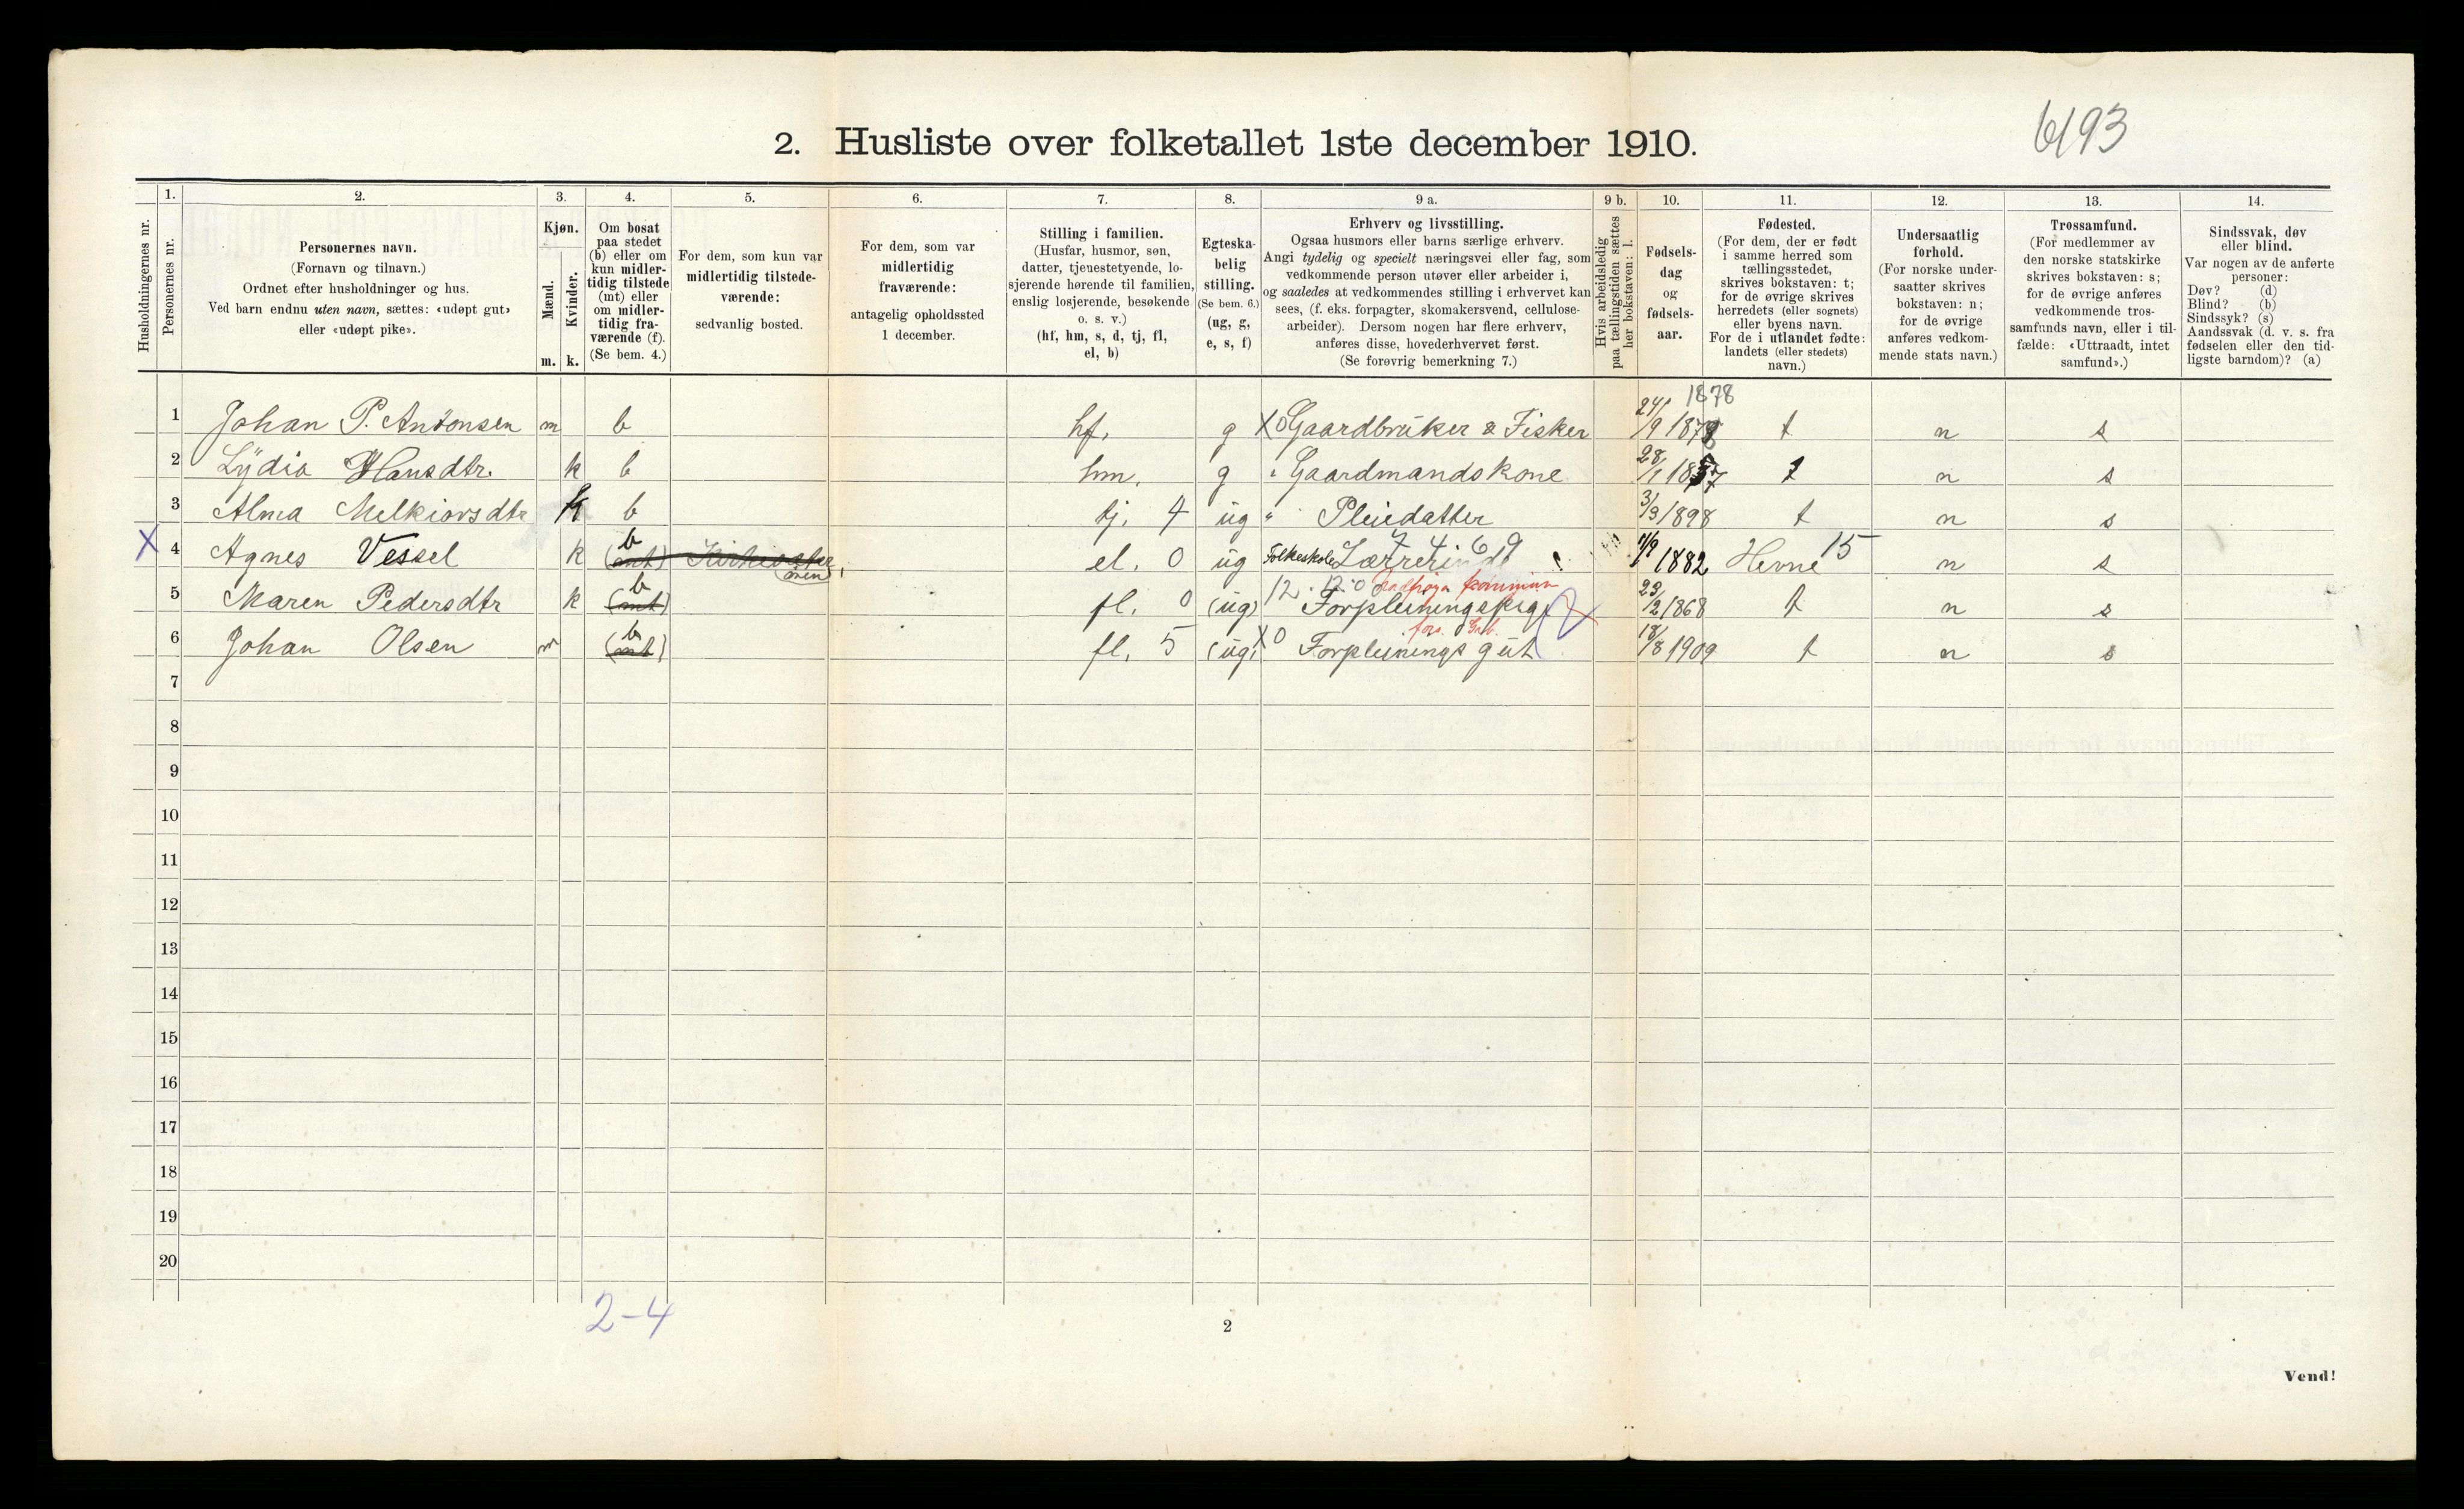 6193
2. Husliste over folketallet 1ste december 1910.
Husholdningernes nr.
1.
Personernes nr.
2.
Personernes navn.
(Fornavn og tilnavn.)
Ordnet efter husholdninger og hus.
Ved barn endnu uten navn, sættes: «udøpt gut»
eller «udøpt pike».
3.
Kjøn.
Mænd.
Kvinder.
m. k.
4.
Om bosat
paa stedet
(b) eller om
kun midler-
tidig tilstede
(mt) eller
om midler-
tidig fra-
værende (f).
(Se bem. 4.)
5.
For dem, som kun var
midlertidig tilstede-
værende:
sedvanlig bosted.
6.
For dem, som var
midlertidig
fraværende:
antagelig opholdssted
1 december.
7.
Stilling i familien.
(Husfar, husmor, søn,
datter, tjenestetyende, lo-
sjerende hørende til familien,
enslig losjerende, besøkende
o. s. v.)
(hf, hm, s, d, tj, fl,
el, b)
8.
Egteska-
belig
stilling.
(Se bem. 6.)
(ug, g,
e, s, f)
9 a.
Erhverv og livsstilling.
Ogsaa husmors eller barns særlige erhverv.
Angi tydelig og specielt næringsvei eller fag, som
vedkommende person utøver eller arbeider i,
og saaledes at vedkommendes stilling i erhvervet kan
sees, (f. eks. forpagter, skomakersvend, cellulose-
arbeider). Dersom nogen har flere erhverv,
anføres disse, hovederhvervet først.
(Se forøvrig bemerkning 7.)
9 b.
Hvis arbeidsledig
paa tællingstiden sættes
her bokstaven: l.
10.
Fødsels-
dag
og
fødsels-
aar.
11.
Fødested.
(For dem, der er født
i samme herred som
tællingsstedet,
skrives bokstaven: t;
for de øvrige skrives
herredets (eller sognets)
eller byens navn.
For de i utlandet fødte:
landets (eller stedets)
navn.)
12.
Undersaatlig
forhold.
(For norske under-
saatter skrives
bokstaven: n;
for de øvrige
anføres vedkom-
mende stats navn.)
13.
Trossamfund.
(For medlemmer av
den norske statskirke
skrives bokstaven: s;
for de øvrige anføres
vedkommende tros-
samfunds navn, eller i til-
fælde: «Uttraadt, intet
samfund».)
14.
Sindssvak, døv
eller blind.
Var nogen av de anførte
personer:
Døv? (d)
Blind? (b)
Sindssyk? (s)
Aandssvak (d. v. s. fra
fødselen eller den tid-
ligste barndom)? (a)
1878
1 Johan P. Antonsen m b hf. g X0 Gaardbruker & Fisker 24/9 1878 t n s
2 Lydia Hansdtr. k b hm. g " Gaardmandskone 28/1 1857 t n s
3 Alma Melkiorsdtr k b tj. 4 ug " Pleiedatter 3/3 1898 t n s
X 4 Agnes Vessel k b (mt) el. 0 ug Folkeskole Lærerinde 1/9 1882 Hevne 15 n s
5 Maren Pedersdtr k b (mt) fl. 0 (ug) 12.12.0 Forpleiningspige 23/2 1868 t n s
6 Johan Olsen m b (mt) fl. 5 (ug) X0 Forpleinings gut 18/8 1909 t n s
7
8
9
10
11
12
13
14
15
16
17
18
19
20
2-4
2
Vend!